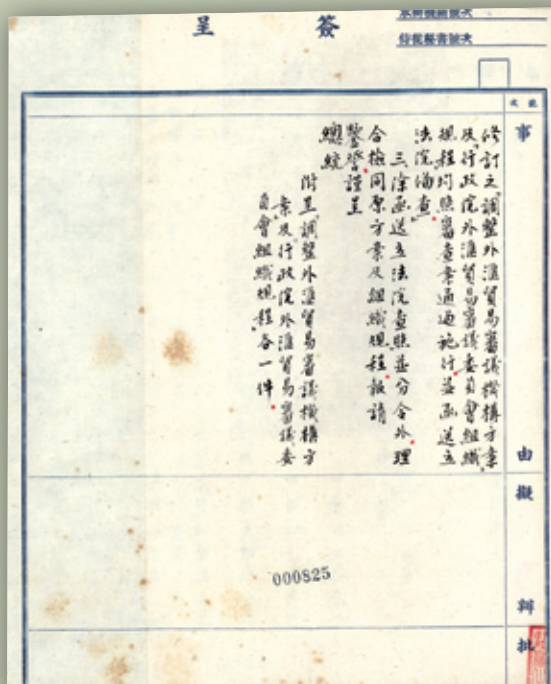 簽呈
事由
修訂之「調整外滙貿易審議機構方案」
及「行政院外滙貿易審議委員會組織
規程」均照審查案通過施行並函送立
法院備查。
三、除函送立法院查照並分令外理
合檢同原方案及組織規程報請
鑒詧謹呈
總統
附呈「調整外滙貿易審議機構方
案」及「行政院外滙貿易審議委
員會組織規程」各一件。
擬辦
批
000825